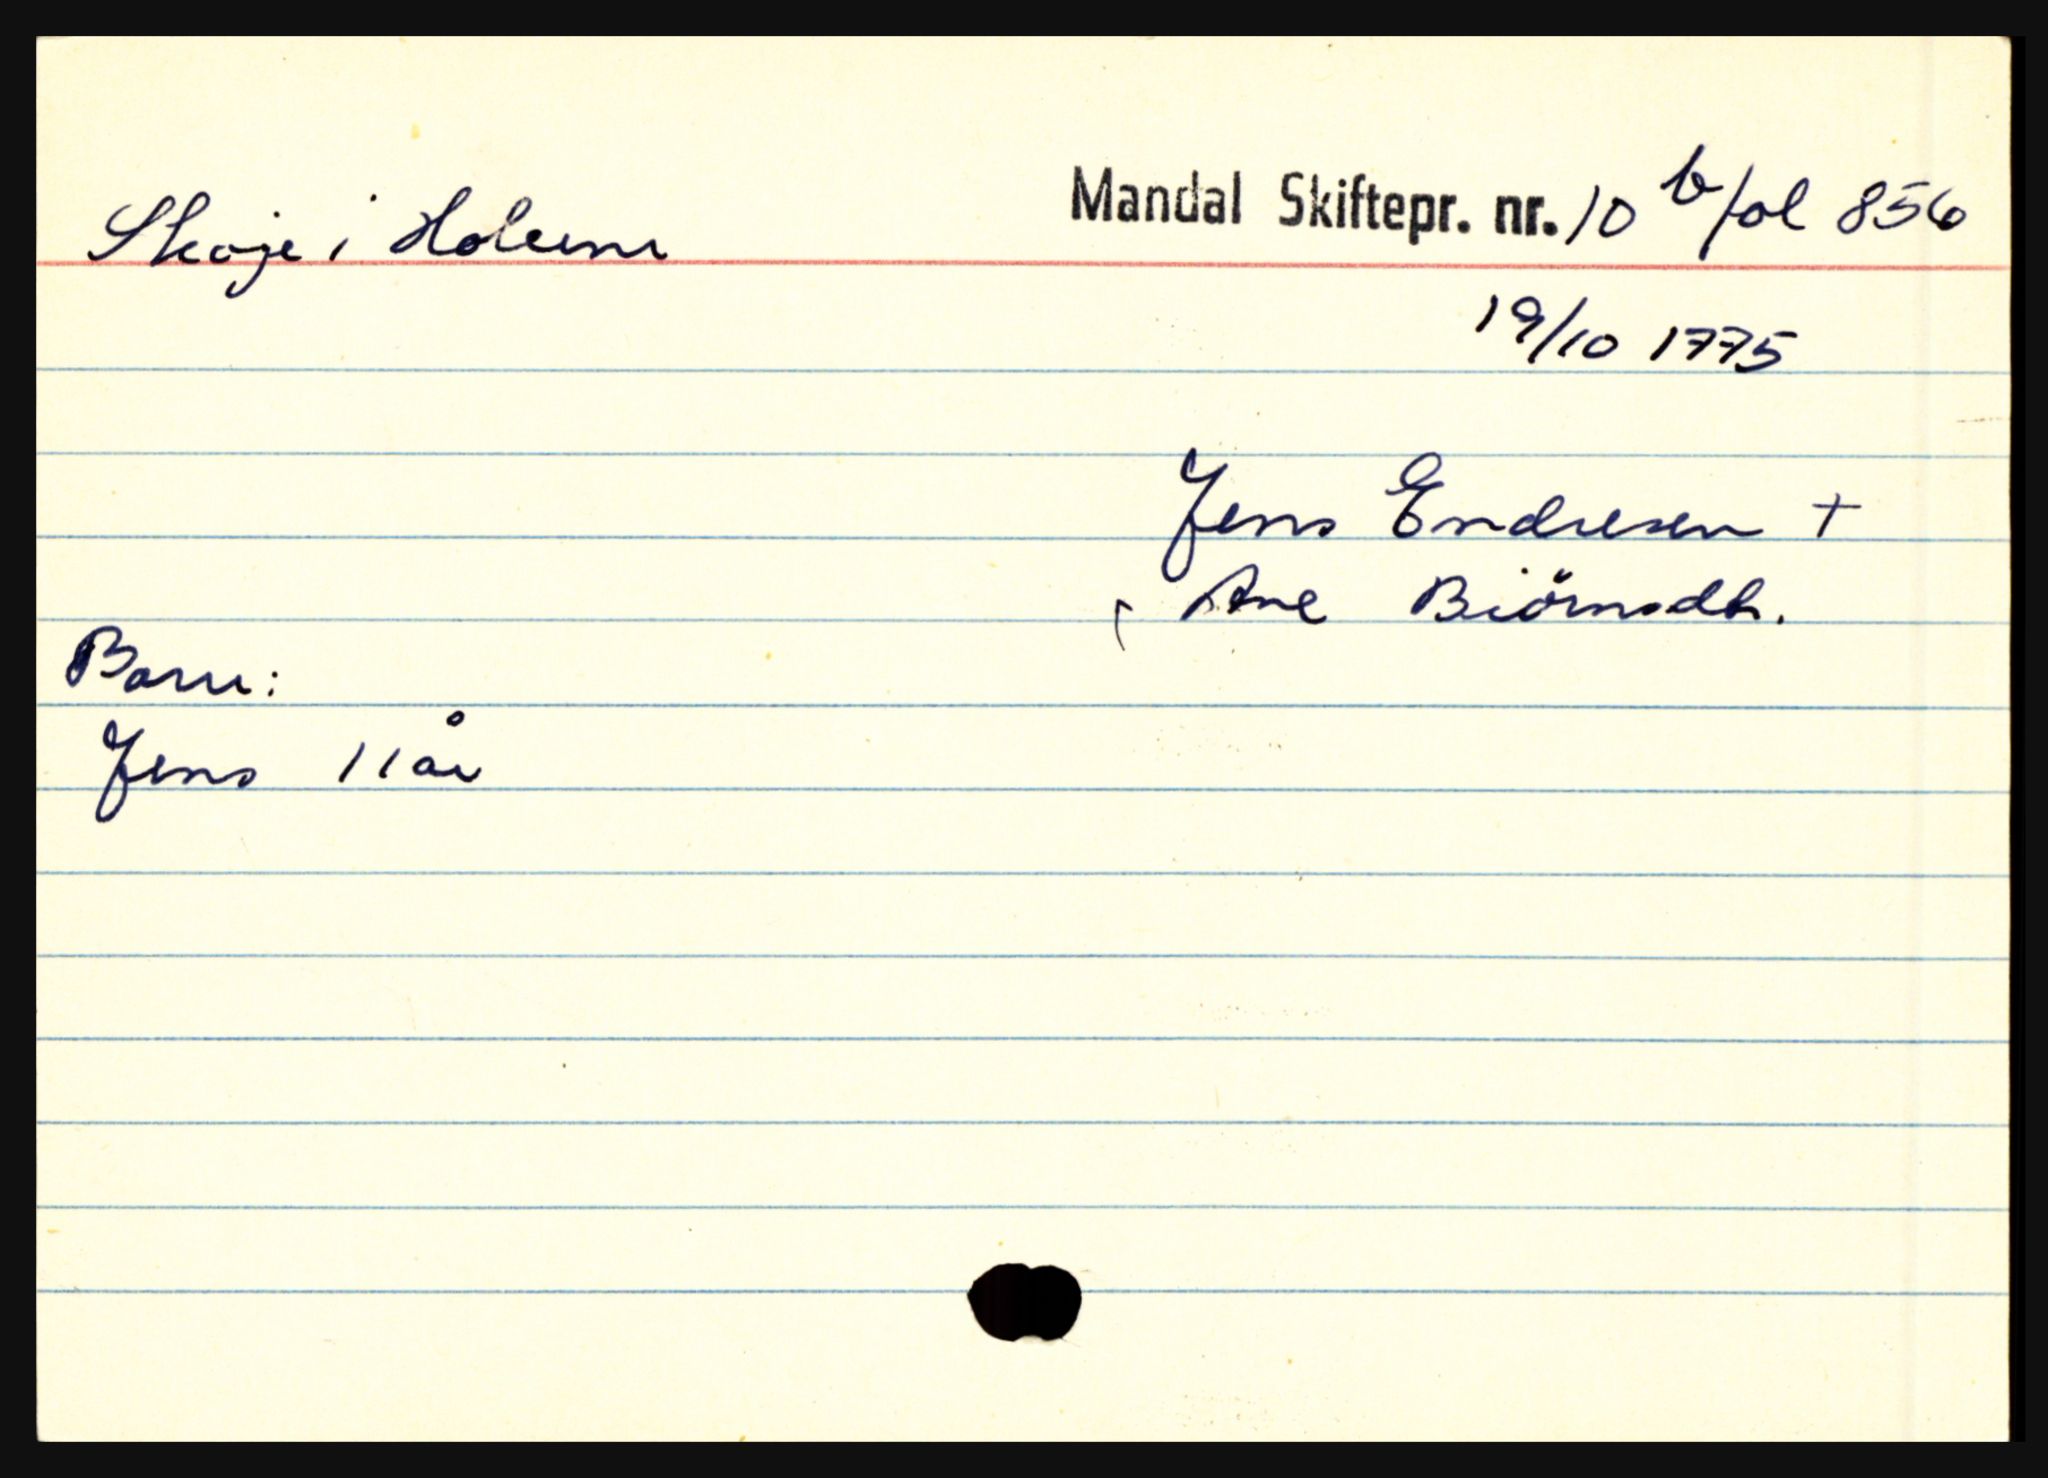 Skoje i Holum
Mandal Skiftepr. nr. 10 b fol 856
19/10 1775
Jens Endresen +
Ane Biörnsdtr.
Barn:
Jens 11 år